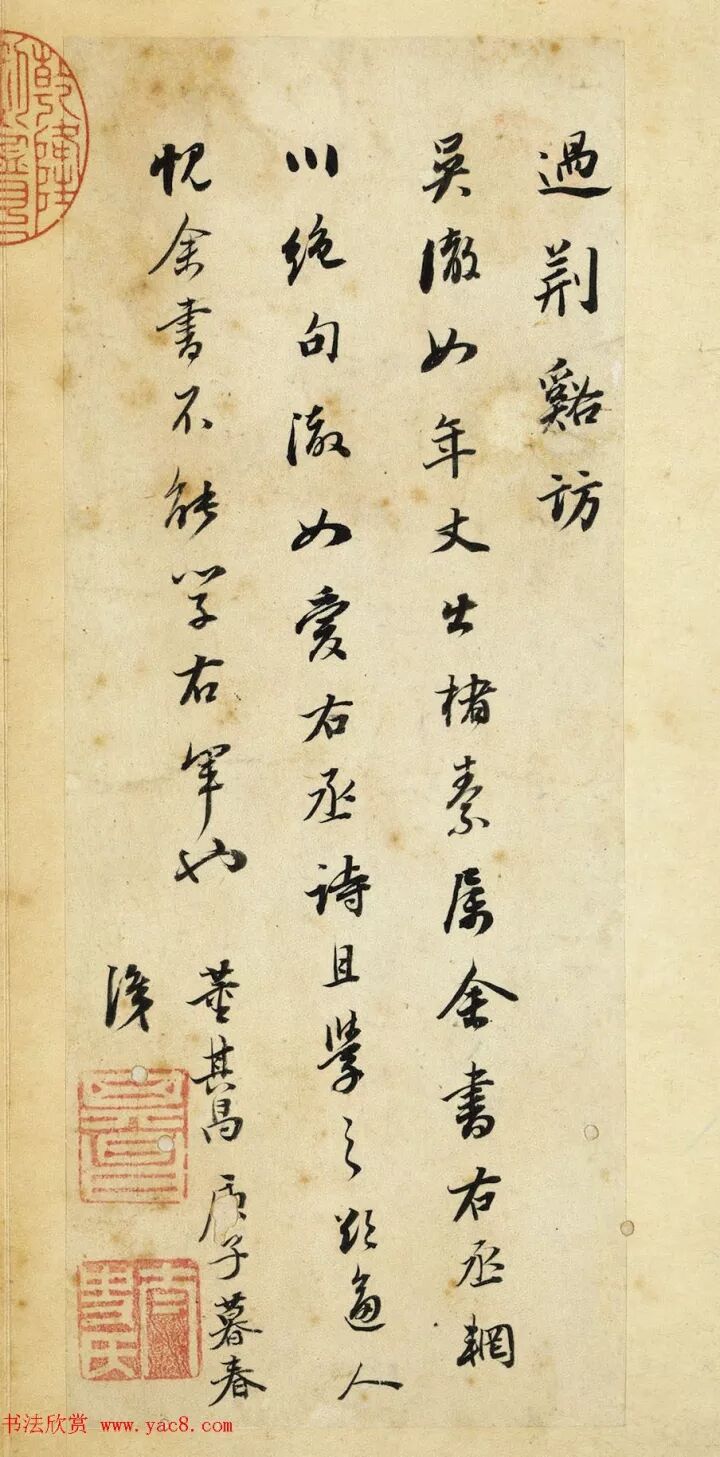 過荊谿訪
吳澈如年丈出楮素属余書右丞輞
川絶句澈如愛右丞詩且學之欲逼人
愧余書不能學右軍也
董其昌庚子暮春
識
乾隆
书法欣赏 www.yac8.com